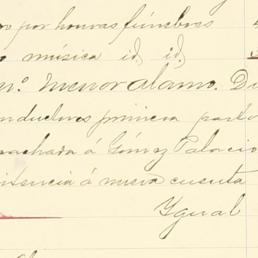 o por honras fúnebres
o música id, id,
nº menor alamo. Di
nductores primera parte
rachada á Gómez Palacio
itencia á nueva cuenta
Ygual